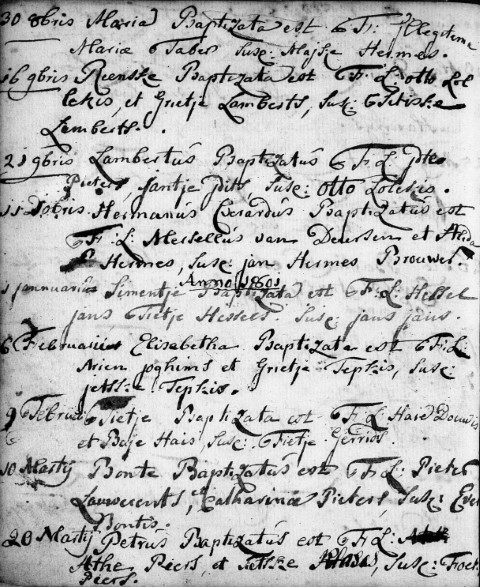 30 8bris Maria Baptizata est F: Illegiteme
Mariæ Faber Susc: Maijke Hermes.
16 9bris Reenske Baptizata est F: L: Otto Lol
lekis, et Grietje Lamberts, Susc: Fetiske
Lamberts.
21 9bris Lambertus Baptizatus F: L: jdts
Pieters jantje jdts Susc: Otto Lolekes.
11 Xbris Hermanus Everardus Baptizatus est
F: L: Mersellus van Deursen et Alida
Hermes, Susc: jan Hermes Brouwer
Anno 1801
1 jannuarius Simentje Baptizata est F: L: Hessel
jans Fietje Hessels Susc: jans jans.
6 Februarius Elisabetha Baptizata est F: L:
Arien joghims et Grietje Tepkis, Susc:
jetske Tepkis.
9 Februa Fietje Baptizata est F: L: Haie Douwis
et Baje Hais, Susc: Fietje Gerrios.
10 Martij Bonte Baptizatus est F: L: Pieter
Lauwerents, et Catharina Pieters, Susc:
Bontes.
20 Martij Petrus Baptizatus est F: L:
Athe Piers, et Susc:
Piers.